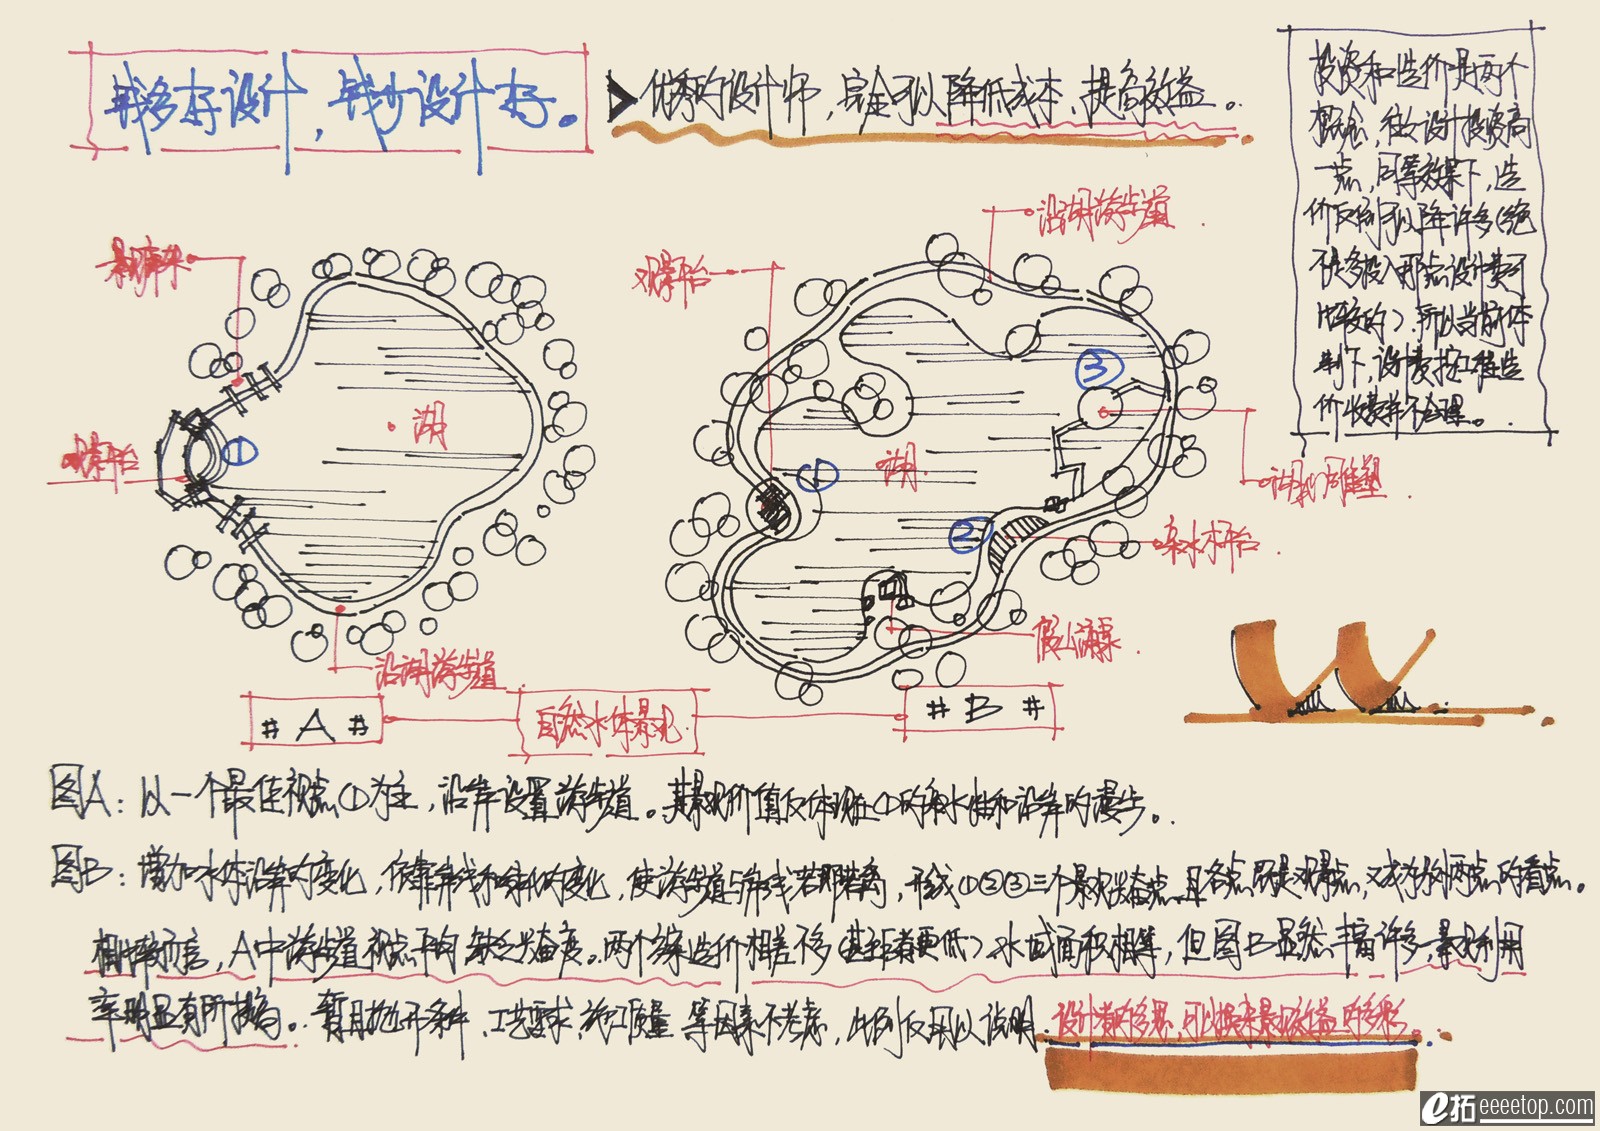 钱多好设计，钱少设计好。
优秀的设计师，完全可以降低成本、提高效益。
投资和造价是两个
概念，往往设计投资高
一点，同等效果下，造
价反倒可以降许多（绝
不是多投入那点设计费可
比较的）。所以当前体
制下，设计费按工程造
价收费并不合理。
沿湖游步道
观景平台
景观廊架
湖
观景平台
①
沿湖游步道
③
①
湖
②
湖心雕塑
亲水木平台
假山瀑泉
# A #
自然水体景观
# B #
图A：以一个最佳视点①为主，沿岸设置游步道。其景观价值仅体现在①的亲水性和沿岸的漫步。
图B：增加水体沿岸的变化，使游步道与岸线若即若离，形成①②③三个景观兴奋点，且各点既是观景点，又成为别两点的看点。
相比较而言，A中游步道视点平均，缺乏兴奋度。两个方案造价相差不多（甚至后者更低），水域面积相等，但图B显然丰富许多，景观利用
率明显有所提高。暂且抛开条件、工艺要求、施工质量等因素不考虑，此例仅用以说明：设计费的多点，可以换来景观效益的多彩。
e拓 eeeetop.com